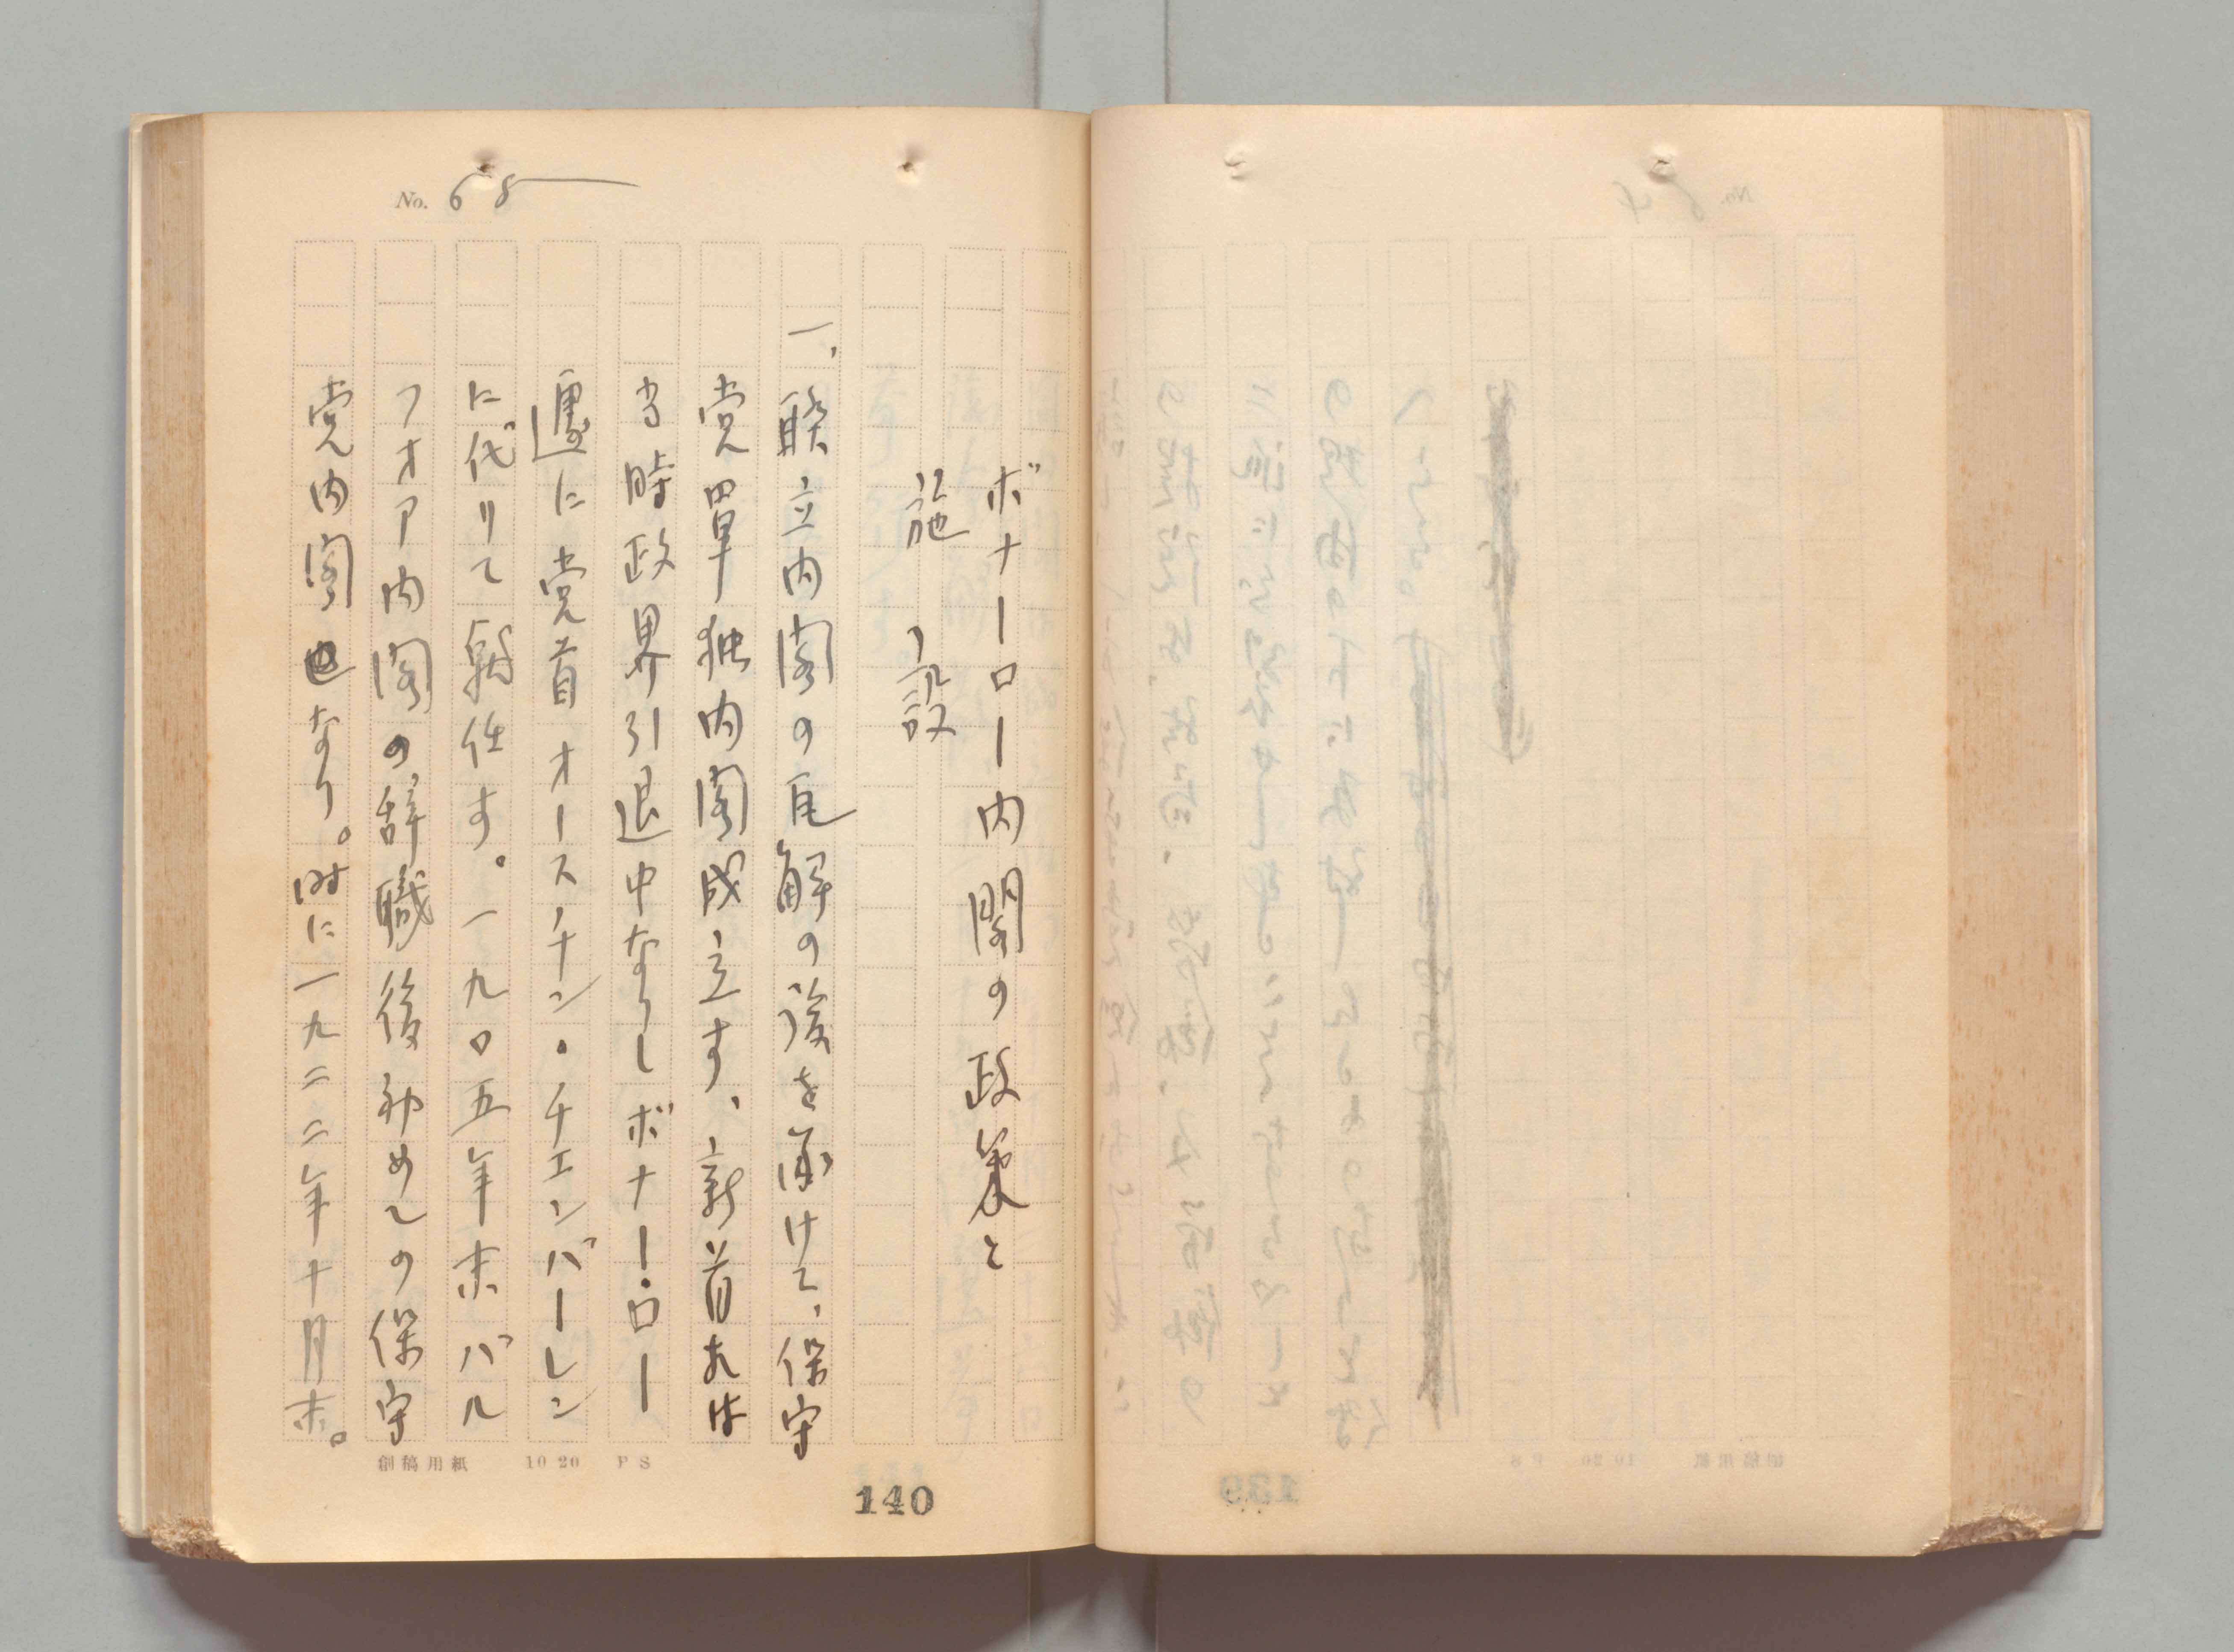 No. 68
ボナーロー内閣の政策と
施設
一、聯立内閣の瓦解の後を承けて、保守
党単独内閣成立す、新首相は
当時政界引退中なりしボナー・ロー
遽に党首オースチン・チエンバーレン
に代りて就任す。一九〇五年末バル
フオア内閣の辞職後初めての保守
党内閣なり。時に一九二二年十月末。
創稿用紙 10 20 P S
140